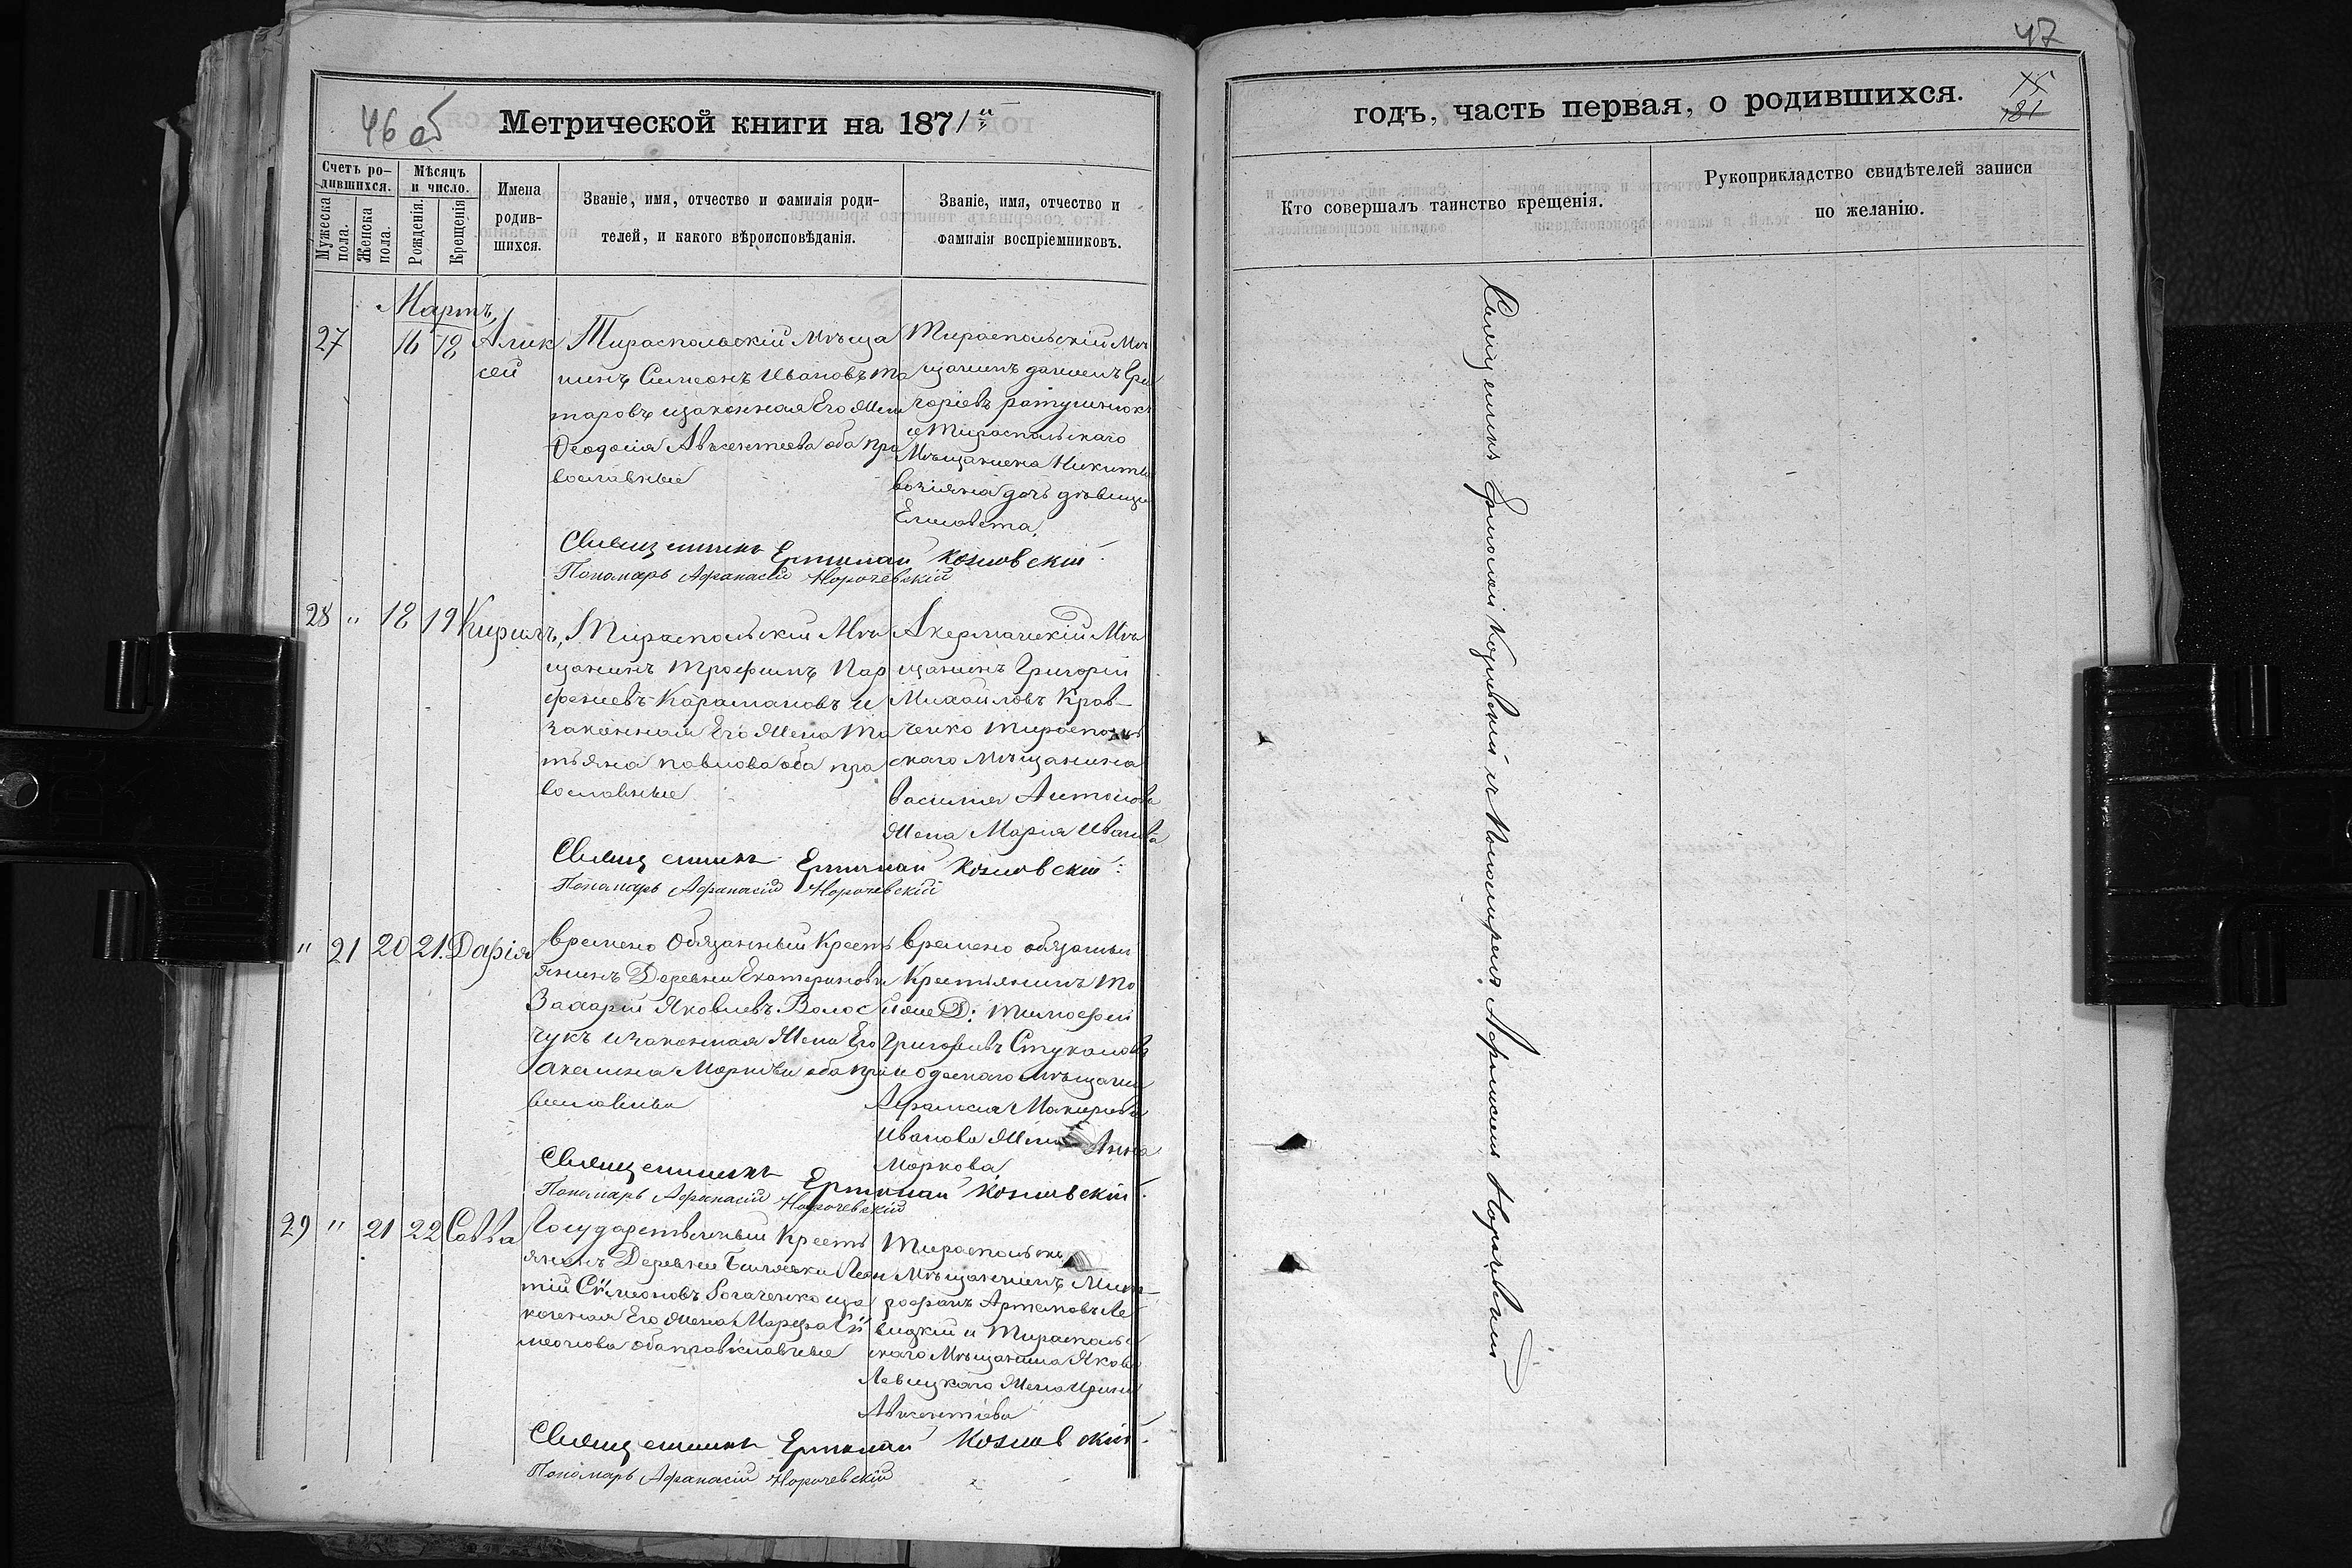 46 об
Метрической книги на 1871й
Счетъ ро-
дившихся.
Мѣсяцъ
и число.
Мужеска
пола.
Женска
пола.
Рожденія.
Крещенія.
Имена
родив-
шихся.
Званіе, имя, отчество и фамилія роди-
телей, и какого вѣроисповѣданія.
Званіе, имя, отчество и
фамилія воспріемниковъ.
Мартъ
27 16 18 Алик
сей
Тираспольскій мѣща
нинъ Симеонъ Ивановъ та
таровъ изаконная Его Жена
Ѳеодосія Авксентеева оба пра
вославные
Тираспольскій Мѣ
щанинъ даниелъ Гри
горіевъ
и Тираспольскаго
Мѣщанина Никиты
дочь дѣвица
Елисавета
Священникъ Ермолай Козловскій
Пономарь Афанасій Норочевскій
28 " 18 19 Кирилъ
Тираспольскій Мѣ
щанинъ Трофимъ Пар
феніевъ Карамановъ и
законная Его Жена Та
тьяна павлова оба пра
вославные
Акерманскій Мѣ
щанинъ Григорій
Михаиловъ Крав-
ченко тирасполь
скаго мѣщанина
василия Антонова
Жена Мария Иванова
Священникъ Ермолай Козловскій
Пономарь Афанасій Норочевскій
" 21 20 21 Дарія
времено Обязанный Кресть
янинъ Деревни Екатериновки
Захарій Яковлевъ Волос
чукъ изаконная Жена Его
акелина Маркова оба пра
вославные
времено обязаный
Крестьянинъ То
йже Д: Тимофей
Григорьевъ Стукановъ
и одескаго мѣщани
Афанасия
Иванова Жена Анна
Маркова
Священникъ Ермолай Козловскій
Пономарь Афанасій Норочевскій
29 " 21 22 Савва
Государственый Кресть
янинъ Деревни Биляевки Леон
тій Симіоновъ Богаченко иза
коненая Его Жена Марфа Си
меонова оба православные
Тираспольски
Мѣщанинъ Мит-
рофанъ Артемовъ Ле
вицкій и Тирасполь
скаго Мѣщанина Якова
Левицкаго Жена Ирина
Авксентіева
Священникъ Ермолай Козловскій
Пономарь Афанасій Норочевскій
47
181
годъ, часть первая, о родившихся.
Кто совершалъ таинство крещенія.
Рукоприкладство свидѣтелей записи
по желанію.
Священникъ Ермолай Козловскій съ Пономаремъ Афанасіемъ Норочевскимъ